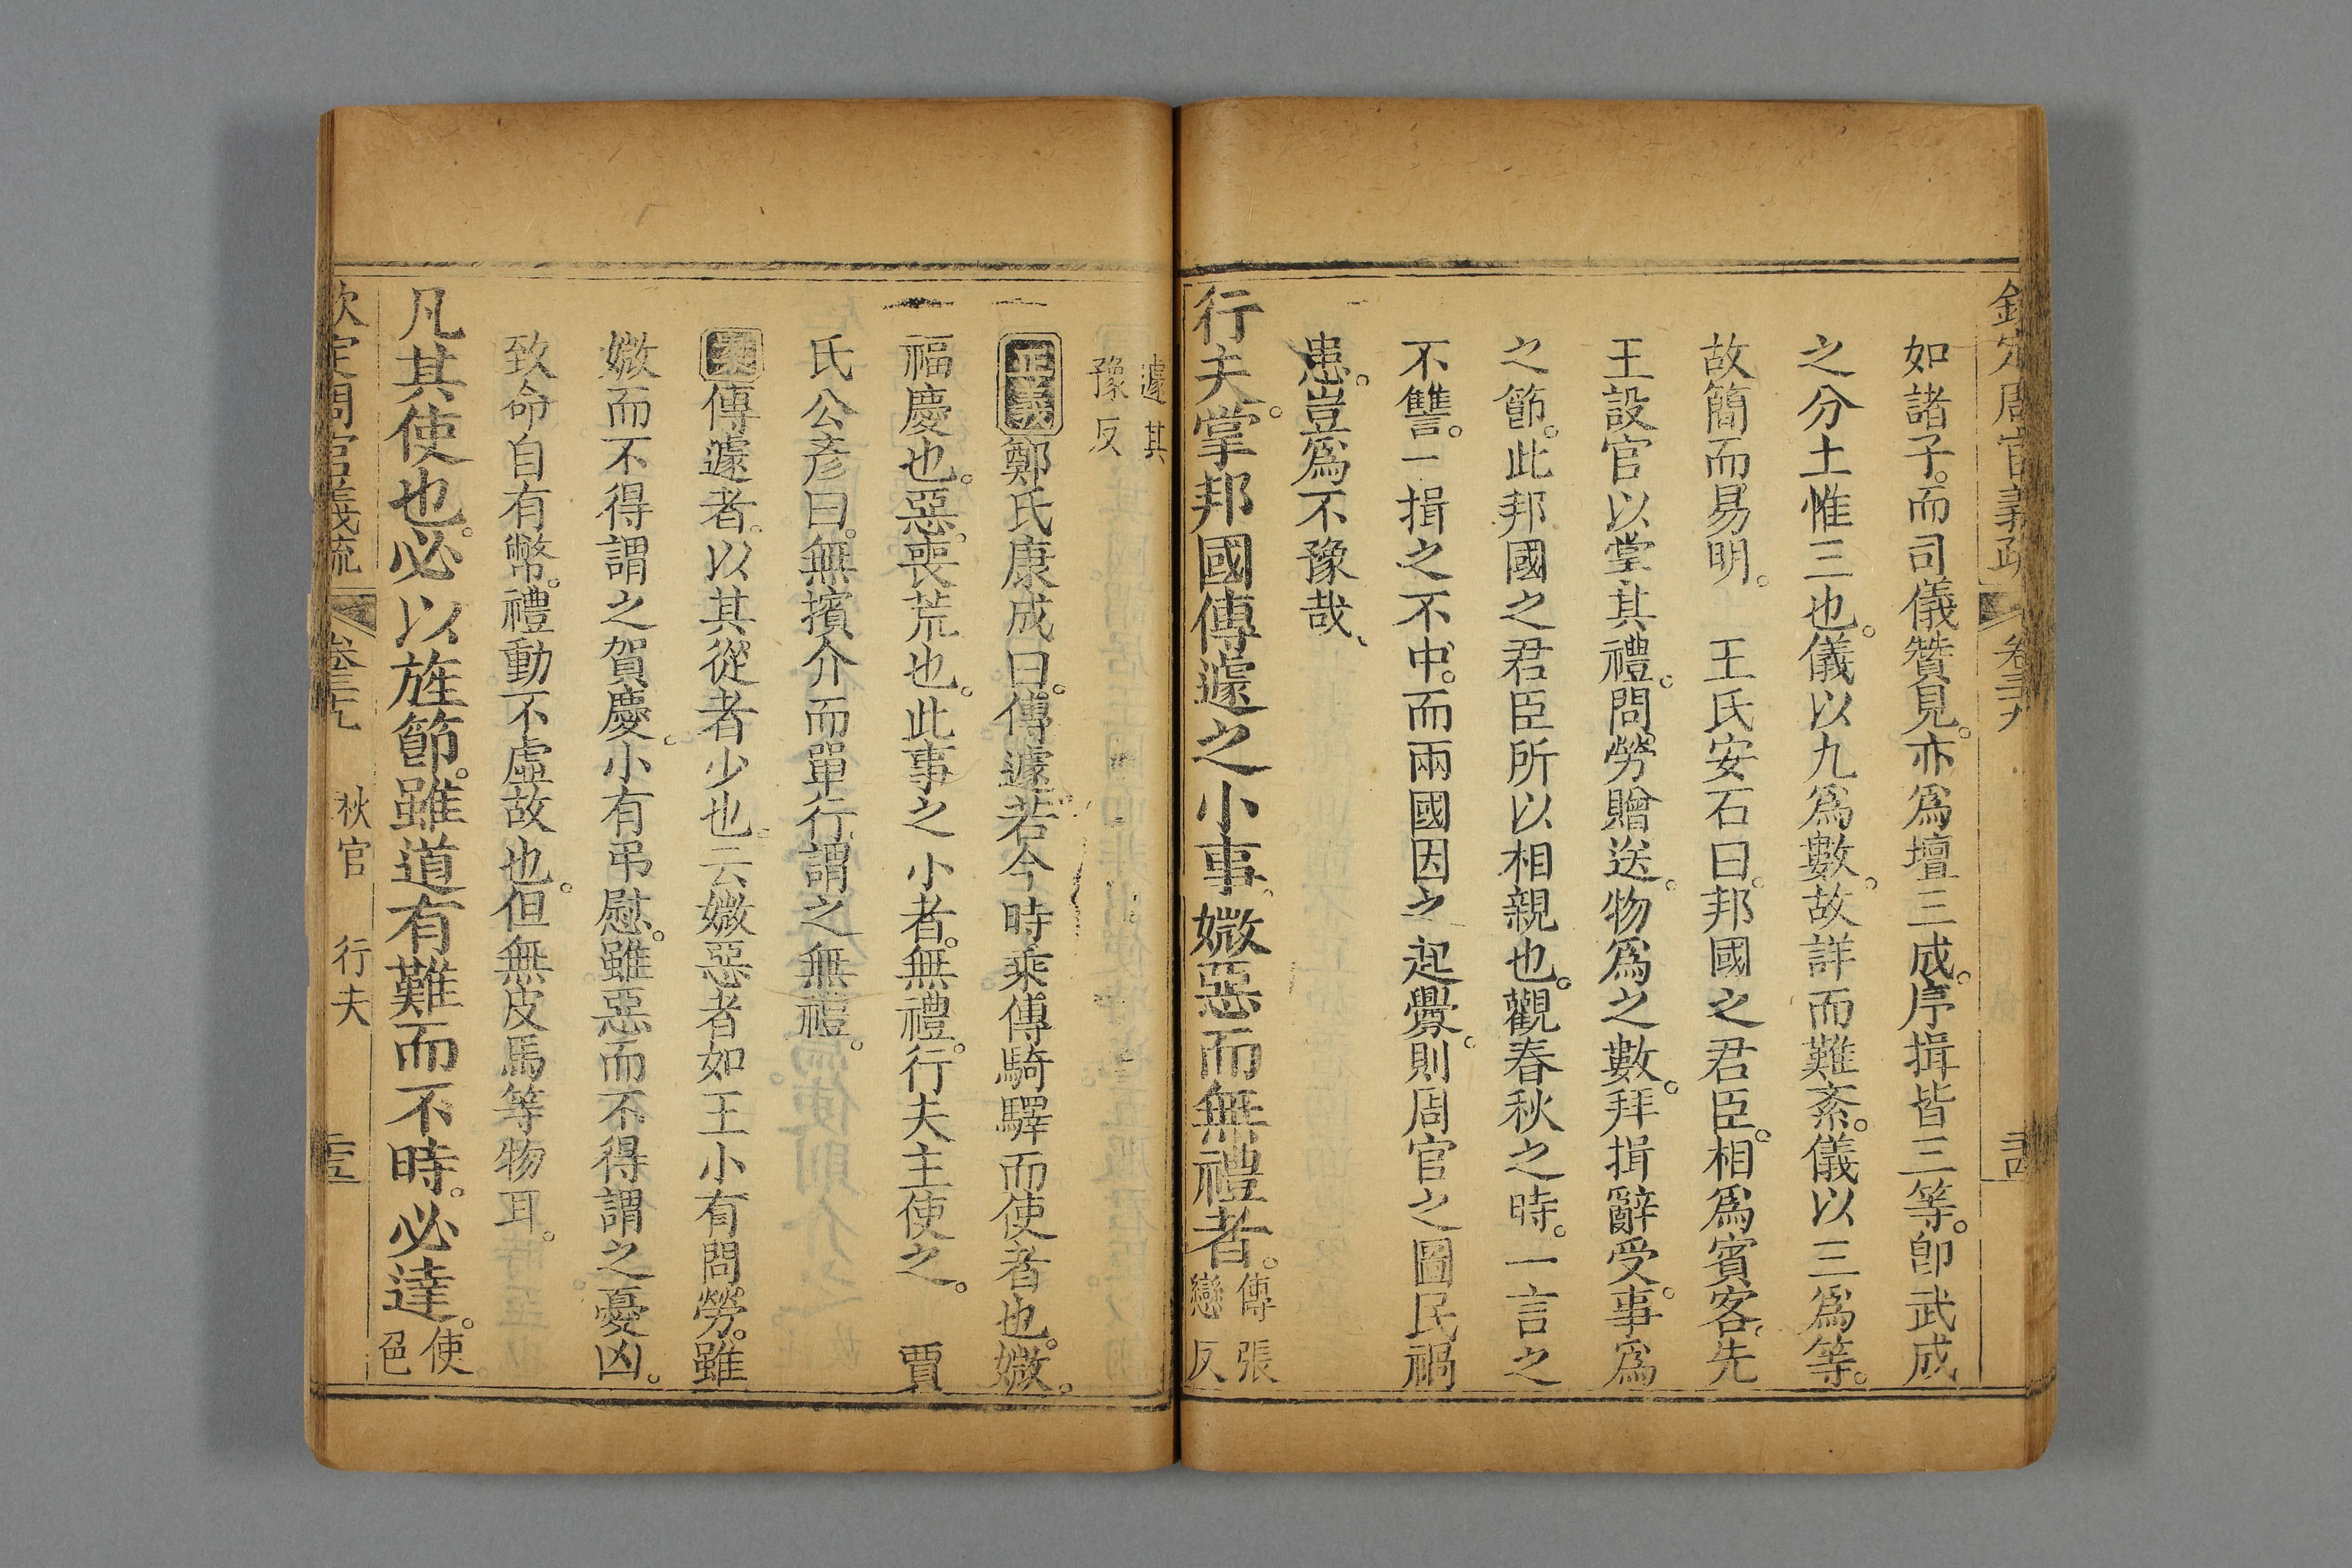 欽定周官義疏 卷三十九 三十四
如諸子。而司儀贊見。亦爲壇三成。序揖皆三等。卽武成
之分土惟三也。儀以九爲數。故詳而難紊。儀以三爲等。
故簡而易明。 王氏安石曰。邦國之君臣。相爲賓客。先
王設官以掌其禮。問勞贈送。物爲之數。拜揖辭受。事爲
之節。此邦國之君臣所以相親也。觀春秋之時。一言之
不讐。一揖之不中。而兩國因之起釁。則周官之圖民禍
患。豈爲不豫哉、
行夫。掌邦國傳遽之小事。媺惡而無禮者。傳張戀反
遽其豫反
正義鄭氏康成曰。傳遽。若今時乘傳騎驛而使者也。媺。
福慶也。惡。喪荒也。此事之小者。無禮。行夫主使之。 賈
氏公彥曰。無擯介而單行。謂之無禮。
傳遽者。以其從者少也。云媺惡者。如王小有問勞。雖
媺而不得謂之賀慶。小有弔慰。雖惡而不得謂之憂凶。
致命自有幣。禮動不虛故也。但無皮馬等物耳。
凡其使也。必以旌節。雖道有難而不時。必達。使色
欽定周官義疏 卷三十九 秋官 行夫 三十五